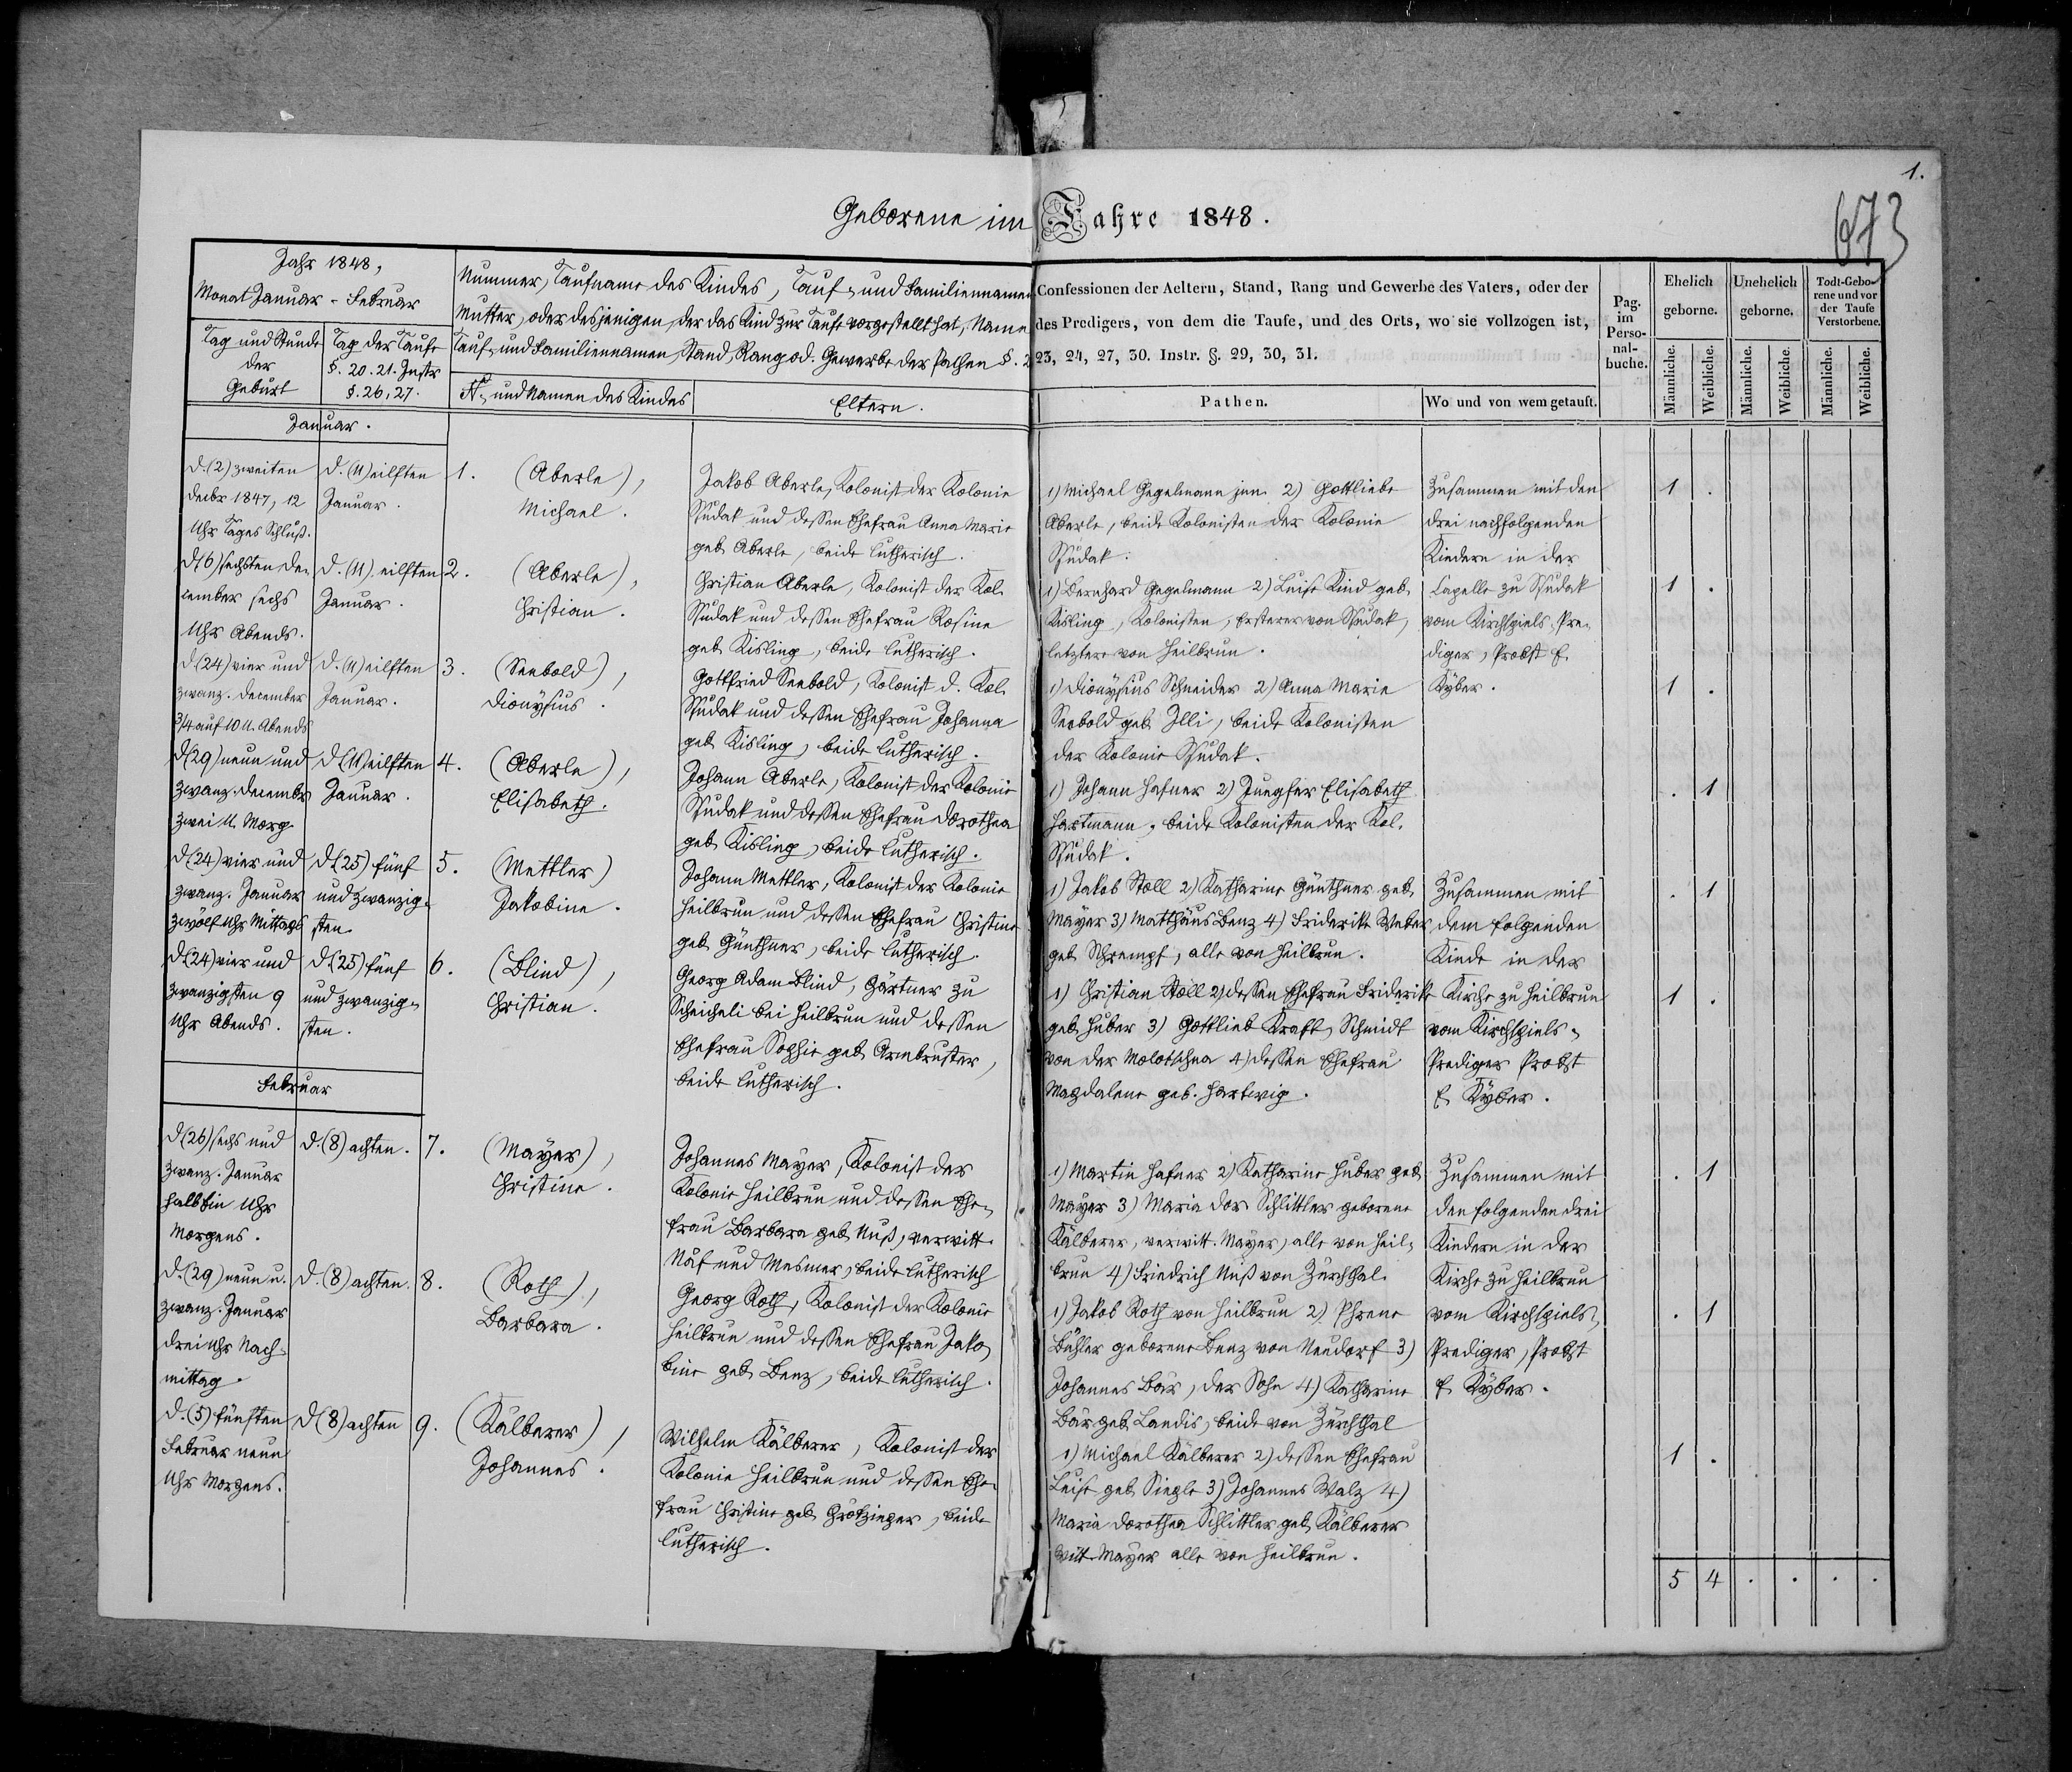 1.
673
Geborene im Jahre 1848.
Jahr 1848,
Monat Januar - Februar
Tag und Stunde
der
Geburt
Tag der Taufe
§. 20. 21. Instr
§. 26, 27.
Nummer, Taufname des Kindes, Tauf- und Familiennamen
Mutter, oder desjenigen, der das Kind zur Taufe vorgestellt hat, Name
Tauf- und Familiennamen, Stand, Rang od. Gewerbe der Pathen §. 2
No. und Namen des Kindes
Eltern.
Confessionen der Aeltern, Stand, Rang und Gewerbe des Vaters, oder der
des Predigers, von dem die Taufe, und des Orts, wo sie vollzogen ist,
23, 24, 27, 30. Instr. §. 29, 30, 31.
Pathen.
Wo und von wem getauft.
Pag.
im
Perso-
nal-
buche.
Ehelich
geborne.
Unehelich
geborne.
Todt-Gebo-
rene und vor
der Taufe
Verstorbene.
Männliche.
Weibliche.
Männliche.
Weibliche.
Männliche.
Weibliche.
Januar.
d. (2) zweiten
Decbr 1847, 12
Uhr Tages Schluß.
d. (11) eilften
Januar.
1. (Aberle),
Michael.
Jakob Aberle, Kolonist der Kolonie
Sudak und dessen Ehefrau Anna Marie
geb. Aberle, beide lutherisch.
1) Michael Gegelmann jun. 2) Gottliebe
Aberle, beide Kolonisten der Kolonie
Sudak.
Zusammen mit den
drei nachfolgenden
Kindern in der
Capelle zu Sudak
vom Kirchspiels-Pre-
diger, Probst E.
Kyber.
1 .
d (6) sechsten De-
cember sechs
Uhr Abends.
d. (11). eilften
Januar.
2. (Aberle),
Christian.
Christian Aberle, Kolonist der Kol.
Sudak und dessen Ehefrau Rosine
geb. Kisling, beide lutherisch.
1) Bernhard Gegelmann 2) Luise Kind geb.
Kisling, Kolonisten, Ersterer von Sudak,
letztere von Heilbrun.
1 .
d (24) vier und
zwanz. December
3/4 auf 10 U. Abends
d. (11) eilften
Januar.
3. (Seebold),
Dionysius.
Gottfried Seebold, Kolonist d. Kol.
Sudak und dessen Ehefrau Johanna
geb. Kisling, beide lutherisch.
1) Dionysius Schneider 2) Anna Marie
Seebold geb. Illi, beide Kolonisten
der Kolonie Sudak.
1 .
d (29) neun und
zwanz. Decembr
zwei U. Morg.
d (11) eilften
Januar.
4. (Aberle),
Elisabeth.
Johann Aberle, Kolonist der Kolonie
Sudak und dessen Ehefrau Dorothea
geb. Kisling, beide lutherisch.
1) Johann Hafner 2) Jungfer Elisabeth
Hartmann, beide Kolonisten der Kol.
Sudak.
. 1
d (24) vier und
zwanz. Januar
zwölf Uhr Mittags
d (25) fünf
und zwanzig-
sten.
5. (Mettler)
Jakobine.
Johann Mettler, Kolonist der Kolonie
Heilbrun und dessen Ehefrau Christine
geb. Günthner, beide lutherisch.
1) Jakob Stoll 2) Katharine Günthner geb.
Mayer 3) Matthäus Benz 4) Friderike Weber
geb. Schrempf, alle von Heilbrun.
Zusammen mit
dem folgenden
Kinde in der
Kirche zu Heilbrun
vom Kirchspiels-
Prediger Probst
E Kyber.
. 1
d (24) vier und
zwanzigsten 9
Uhr Abends.
d (25) fünf
und zwanzig-
sten.
6. (Blind),
Christian.
Georg Adam Blind, Gärtner zu
Scheicheli bei Heilbrun und dessen
Ehefrau Sophie geb. Armbruster,
beide lutherisch.
1) Christian Stoll 2) dessen Ehefrau Friderike
geb. Huber 3) Gottlieb Kraft, Schmidt
von der Molotschna 4) dessen Ehefrau
Magdalene geb. Hartwig.
1 .
Februar
d (26) sechs und
zwanz. Januar
halb Ein Uhr
Morgens.
d. (8) achten.
7. (Mayer),
Christine.
Johannes Mayer, Kolonist der
Kolonie Heilbrun und dessen Ehe-
frau Barbara geb. Nuß, verwitt.
Näf und Mesmer, beide lutherisch
1) Martin Hafner 2) Katharine Huber geb.
Mayer 3) Maria Dor. Schlittler geborene
Kälberer, verwitt. Mayer, alle von Heil-
brun 4) Friedrich Nuß von Zürchthal.
Zusammen mit
den folgenden drei
Kindern in der
Kirche zu Heilbrun
vom Kirchspiels-
Prediger, Probst
E Kyber.
. 1
d. (29) neun u.
zwanz. Januar
drei Uhr Nach-
mittag.
d. (8) achten.
8. (Roth),
Barbara.
Georg Roth, Kolonist der Kolonie
Heilbrun und dessen Ehefrau Jako-
bine geb. Benz, beide lutherisch.
1) Jakob Roth von Heilbrun 2) Phrene
Bühler geborene Benz von Neudorf 3)
Johannes Bär, der Sohn 4) Katharine
Bär geb. Landis, beide von Zürchthal
. 1
d. (5) fünften
Februar neun
Uhr Morgens.
d (8) achten
9. (Kälberer),
Johannes.
Wilhelm Kälberer, Kolonist der
Kolonie Heilbrun und dessen Ehe-
frau Christine geb. Grötzinger, beide
lutherisch.
1) Michael Kälberer 2) dessen Ehefrau
Luise geb. Siegle 3) Johannes Walz 4)
Maria Dorothea Schlittler geb. Kälberer
witt. Mayer alle von Heilbrun.
1 .
5 4 . . . .